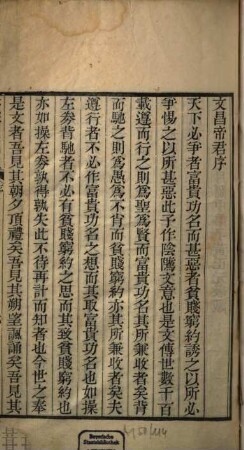 文昌帝君序
天下必爭者富貴功名而甚惡者貧賤窮約誘之以所必
爭惕之以所甚惡此予作陰騭文意也是文傳世數千百
載遵而行之則為聖為賢而富貴功名其所兼收者矣背
而馳之則為愚為不肖而貧賤窮約亦其所兼收者矣夫
遵行者不必作富貴功名之想而其取富貴功名也如操
左劵背馳者不必有貧賤窮約之思而其致貧賤窮約也
亦如操左劵孰得孰失此不待再計而知者也今世之奉
是文者吾見其朝夕頂禮矣吾見其朔望諷誦矣吾見其
Bayerische
Staatsbibliothek